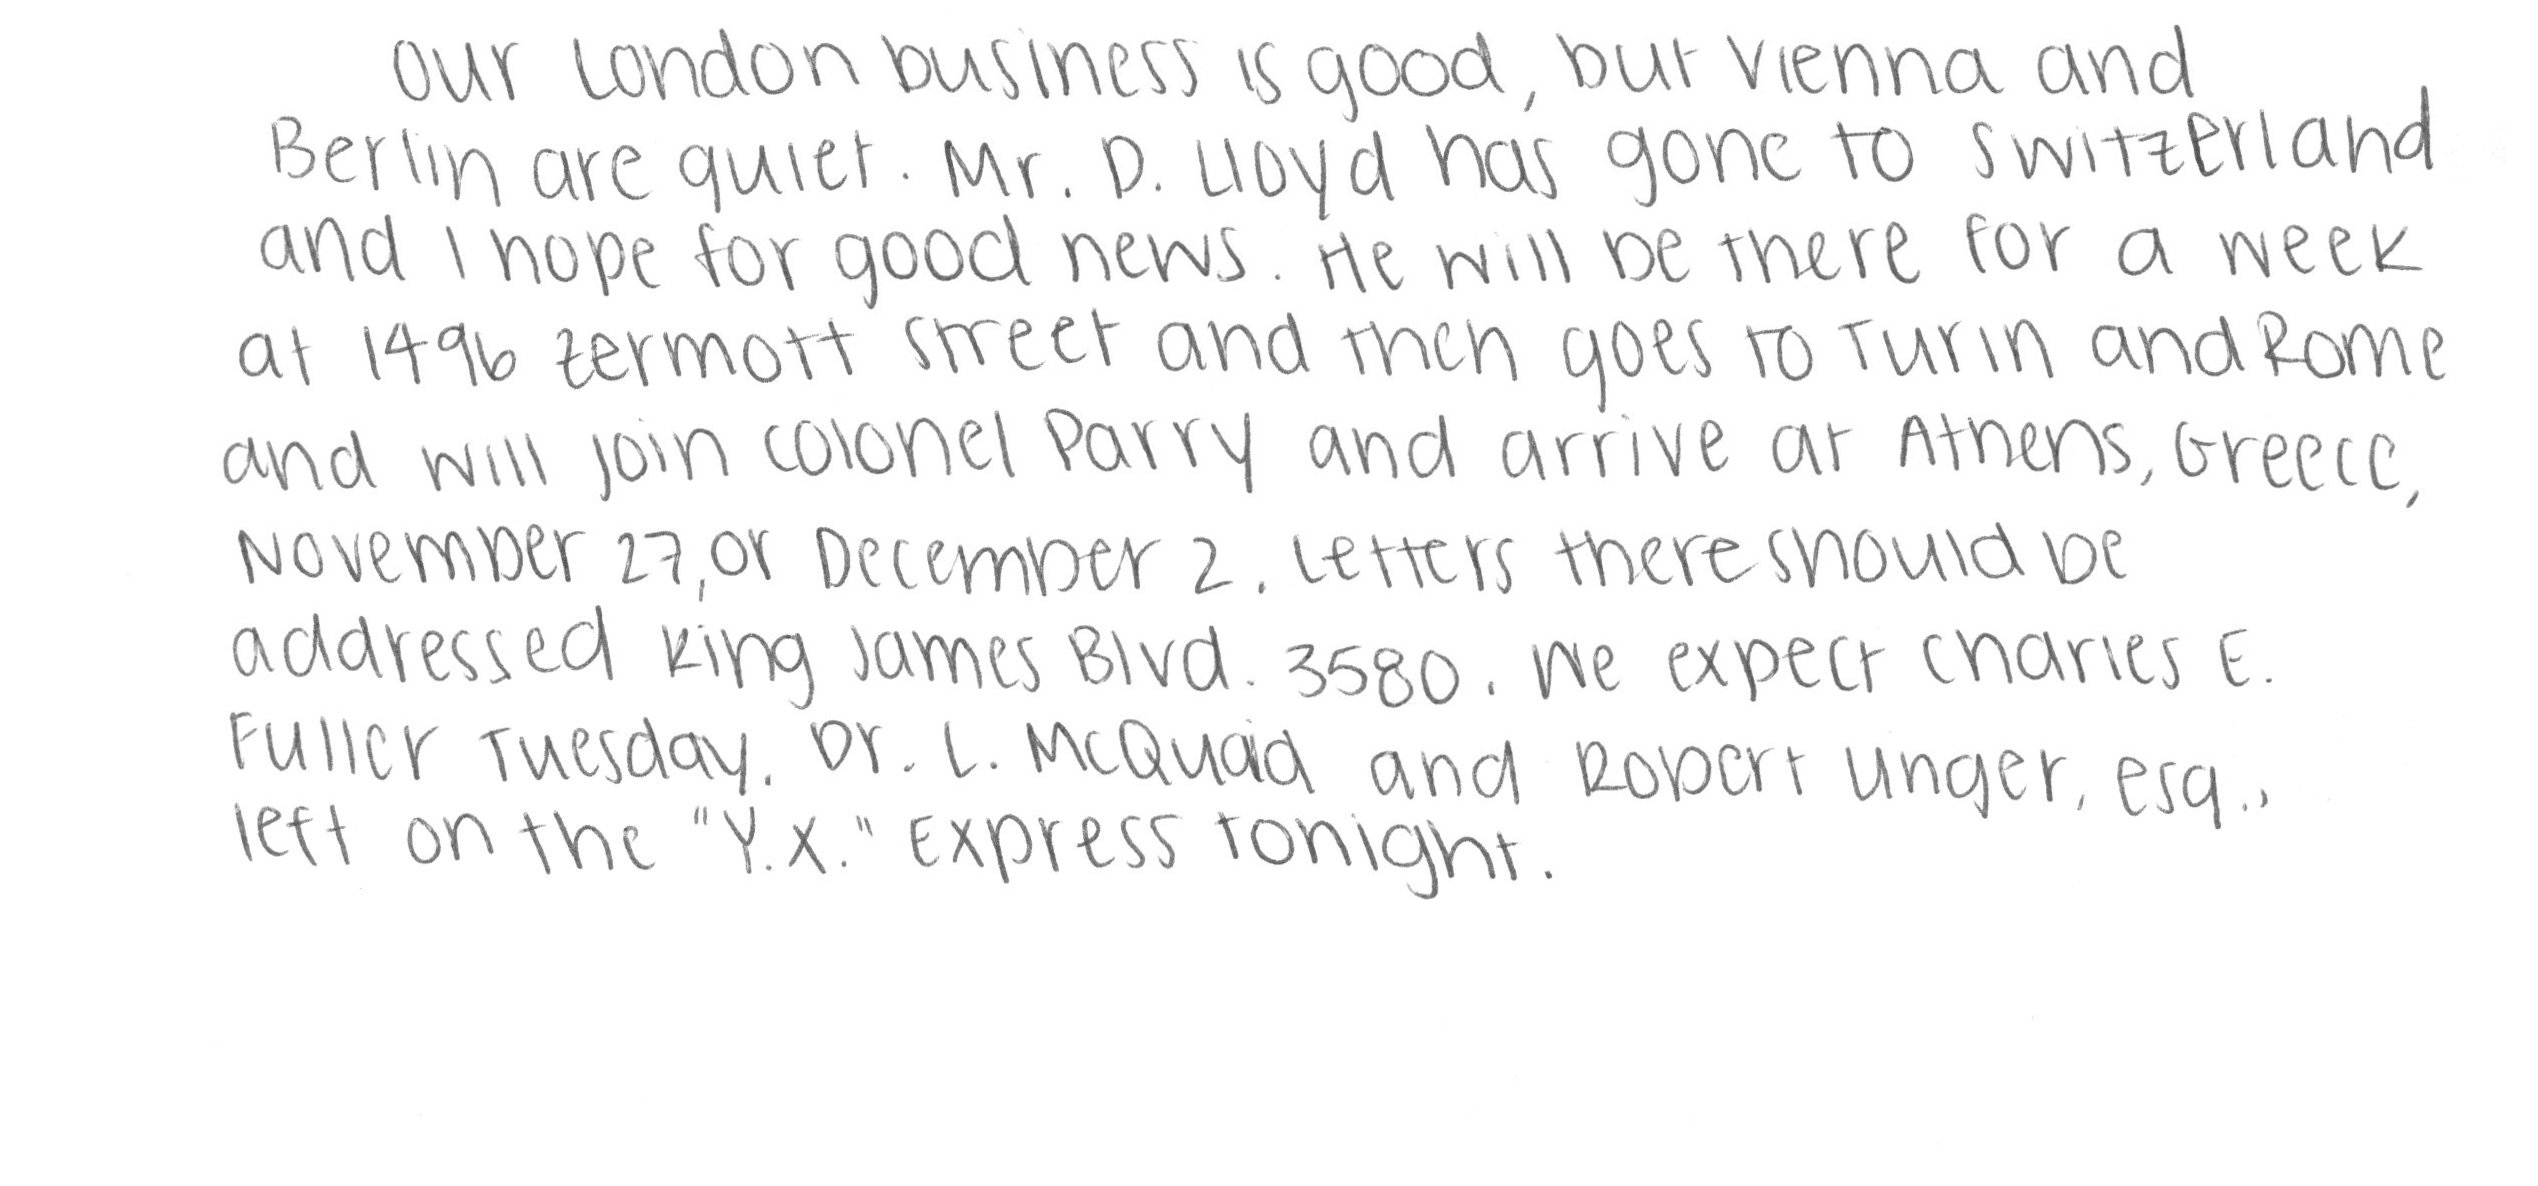 Our London business is good, but Vienna and
Berlin are quiet. Mr. D. Lloyd has gone to Switzerland
and I hope for good news. He will be there for a week
at 1496 Zermott Street and then goes to Turin and Rome
and will join Colonel Parry and arrive at Athens, Greece,
November 27, or December 2. Letters there should be
addressed King James Blvd. 3580. We expect Charles E.
Fuller Tuesday. Dr. L. McQuaid and Robert Unger, Esq.,
left on the "Y.X." Express tonight.